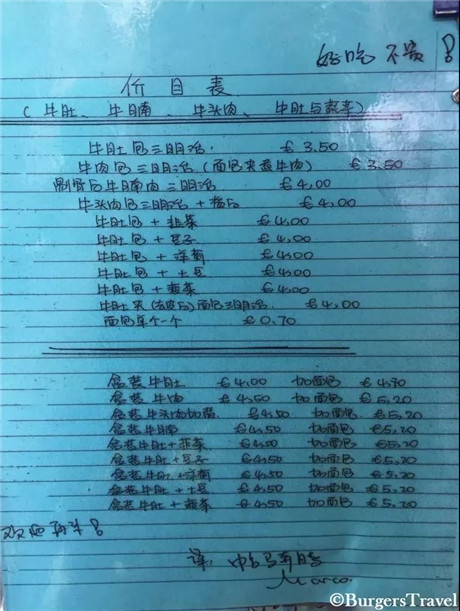 好吃 不贵！
价目表
（牛肚、牛腩、牛头肉、牛肚与蔬菜）
牛肚包三明治. €3.50
牛肉包三明治（面包夹 牛肉） €3.50
牛腩肉三明治 €4.00
牛头肉包三明治 + €4.00
牛肚包 + 韭菜 €4.00
牛肚包 + 豆子 €4.00
牛肚包 + 洋蓟 €4.00
牛肚包 + 土豆 €4.00
牛肚包 + 菜 €4.00
牛肚夹 面包三明治. €4.00
面包单个一个 €0.70
盒装牛肚 €4.00 加面包 €4.70
盒装牛肉 €4.50 加面包 €5.20
盒装牛头肉 €4.50 加面包 €5.20
盒装牛腩 €4.50 加面包 €5.20
盒装牛肚+韭菜 €4.50 加面包 €5.20
盒装牛肚+豆子 €4.50 加面包 €5.20
盒装牛肚+洋蓟 €4.50 加面包 €5.20
盒装牛肚+土豆 €4.50 加面包 €5.20
盒装牛肚+ 菜 €4.50 加面包 €5.20
欢迎再来！
译
Marco
©BurgersTravel